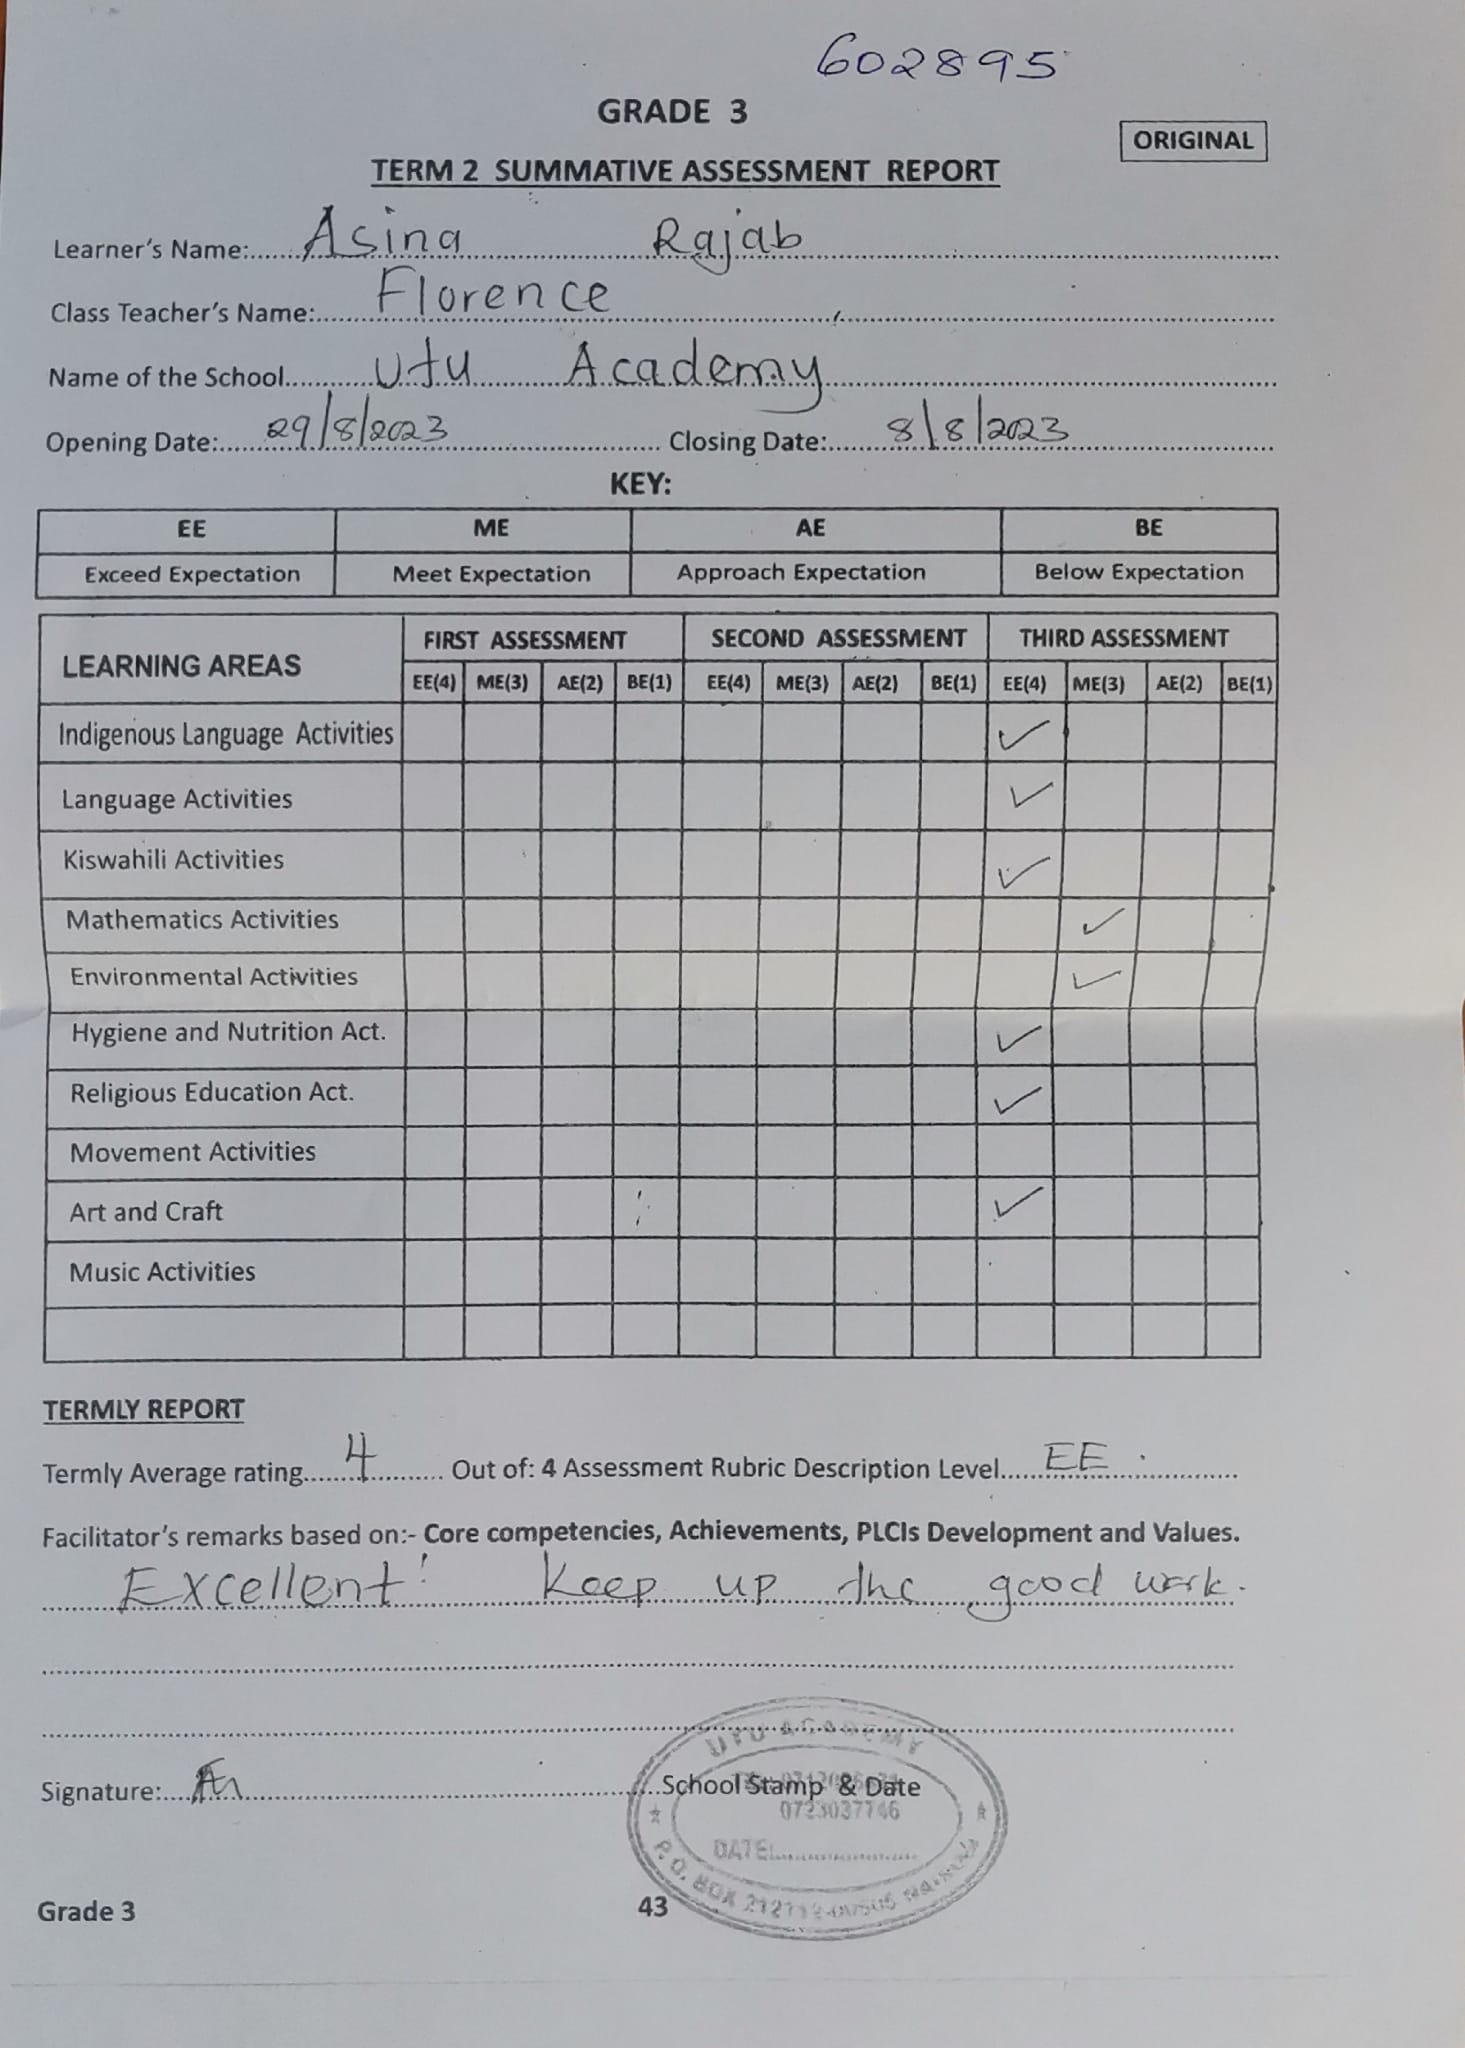 602895
GRADE 3
ORIGINAL
TERM 2 SUMMATIVE ASSESSMENT REPORT
Learner's Name: Asina Rajab
Class Teacher's Name: Florence
Name of the School Utu Academy
Opening Date: 29/8/2023 Closing Date: 8/8/2023
KEY:
EE ME AE BE
Exceed Expectation Meet Expectation Approach Expectation Below Expectation
LEARNING AREAS FIRST ASSESSMENT SECOND ASSESSMENT THIRD ASSESSMENT
EE(4) ME(3) AE(2) BE(1) EE(4) ME(3) AE(2) BE(1) EE(4) ME(3) AE(2) BE(1)
Indigenous Language Activities ✓
Language Activities ✓
Kiswahili Activities ✓
Mathematics Activities ✓
Environmental Activities ✓
Hygiene and Nutrition Act. ✓
Religious Education Act. ✓
Movement Activities
Art and Craft ✓
Music Activities
TERMLY REPORT
Termly Average rating 4 Out of: 4 Assessment Rubric Description Level EE
Facilitator's remarks based on:- Core competencies, Achievements, PLCIs Development and Values.
Excellent! Keep up the good work.
Signature: School Stamp & Date
UTU ACADEMY
0723037746
DATE:
P.O. BOX
Grade 3 43